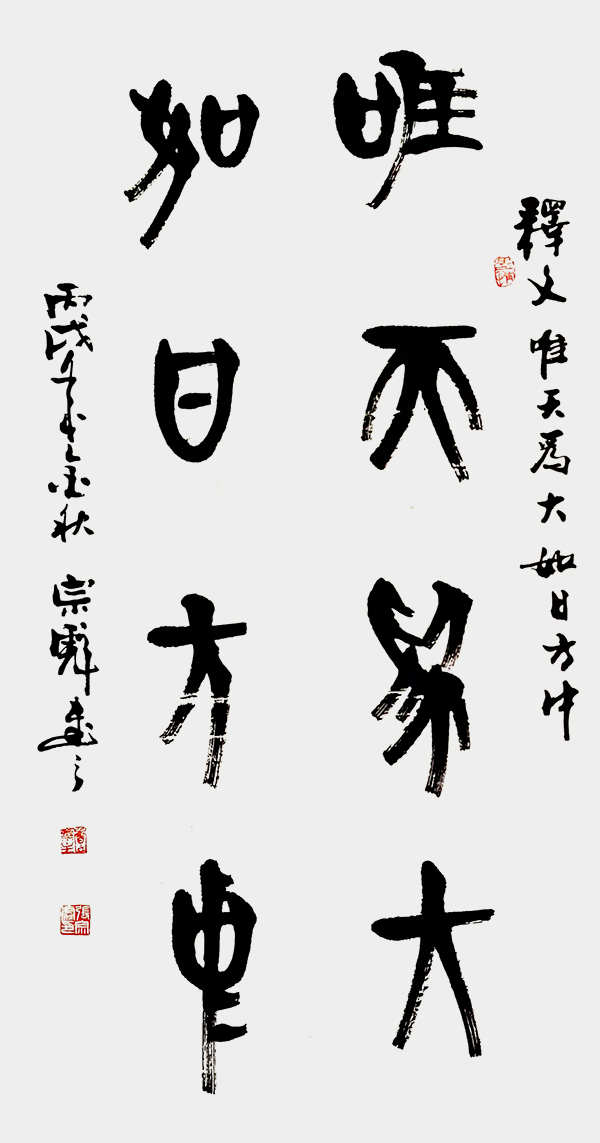 釋文 唯天爲大 如日方中
唯天爲大
如日方中
丙戌年金秋 宗書之